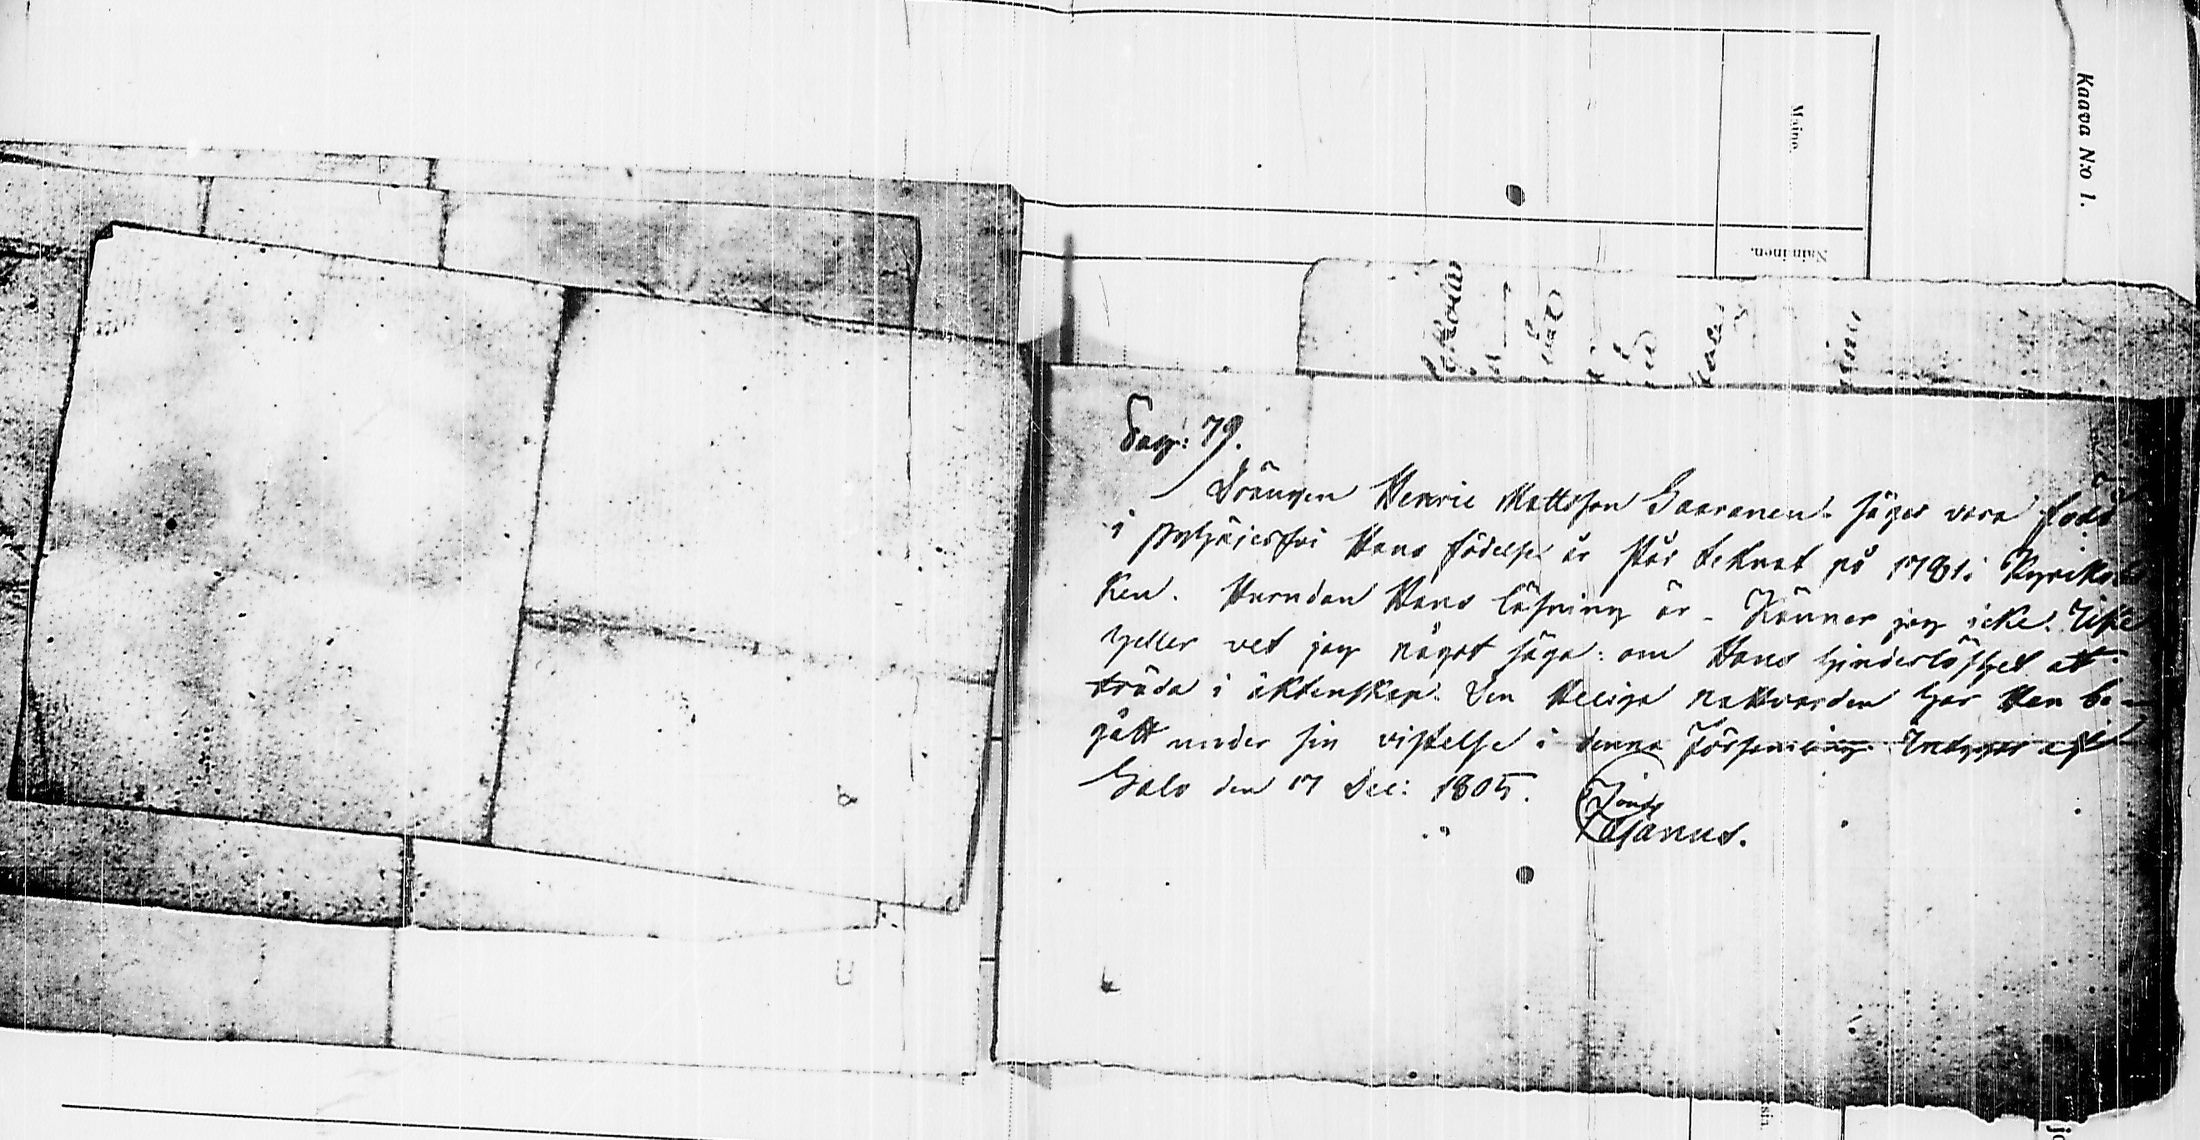 Kaava N:o 1.
Maino.
Naiminen.
Pag: 79.
Drängen Henric Mattsson Saaranen säges vara född
i Pyhäjerfvi Hans födelse år står teknat på 1781 i Kyrkobo
ken. Hurudan Hans läsning är - Känner jag icke. Icke
heller vet jag något säga: om Hans hinderlöshet att
träda i äktenskap. Den Heliga nattvarden har Han be-
gått under sin vistelse i denna Församling. Intygar
Salo den 17 Dec: 1805.
Cajanus.